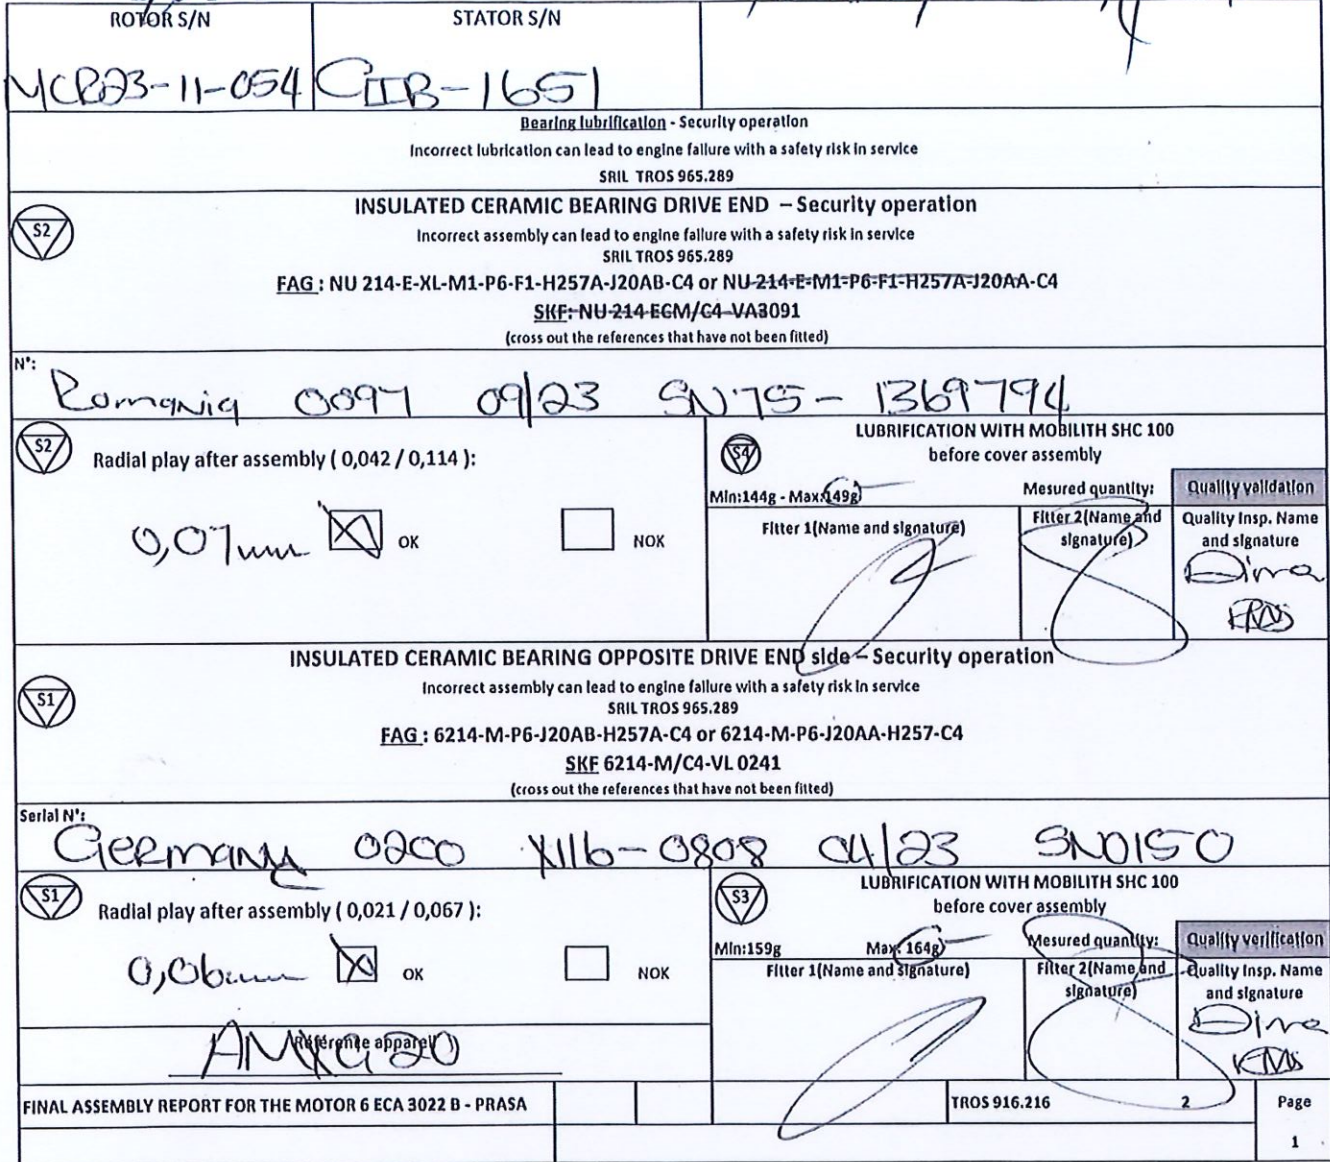 ROTOR S/N STATOR S/N
MCR23-11-054 CIIB-1651
Bearing lubrification - Security operation
Incorrect lubrication can lead to engine failure with a safety risk in service
SRIL TROS 965.289
S2
INSULATED CERAMIC BEARING DRIVE END – Security operation
Incorrect assembly can lead to engine failure with a safety risk in service
SRIL TROS 965.289
FAG : NU 214-E-XL-M1-P6-F1-H257A-J20AB-C4 or NU 214-E-M1-P6-F1-H257A-J20AA-C4
SKF: NU 214 ECM/C4-VA3091
(cross out the references that have not been fitted)
N°:
Romania 0097 09/23 SN75-1369794
S2
Radial play after assembly ( 0,042 / 0,114 ):
0,07mm OK NOK
S4
LUBRIFICATION WITH MOBILITH SHC 100
before cover assembly
Min:144g - Max:149g Mesured quantity: Quality validation
Fitter 1(Name and signature) Fitter 2(Name and signature) Quality Insp. Name and signature
INSULATED CERAMIC BEARING OPPOSITE DRIVE END side – Security operation
S1
Incorrect assembly can lead to engine failure with a safety risk in service
SRIL TROS 965.289
FAG : 6214-M-P6-J20AB-H257A-C4 or 6214-M-P6-J20AA-H257-C4
SKF 6214-M/C4-VL 0241
(cross out the references that have not been fitted)
Serial N°:
Germany 0200 X116-0808 04/23 SN0150
S1
Radial play after assembly ( 0,021 / 0,067 ):
0,06mm OK NOK
Référence appareil
AMXG20
S3
LUBRIFICATION WITH MOBILITH SHC 100
before cover assembly
Min:159g Max: 164g Mesured quantity: Quality verification
Fitter 1(Name and signature) Fitter 2(Name and signature) Quality Insp. Name and signature
FINAL ASSEMBLY REPORT FOR THE MOTOR 6 ECA 3022 B - PRASA TROS 916.216 2 Page
1